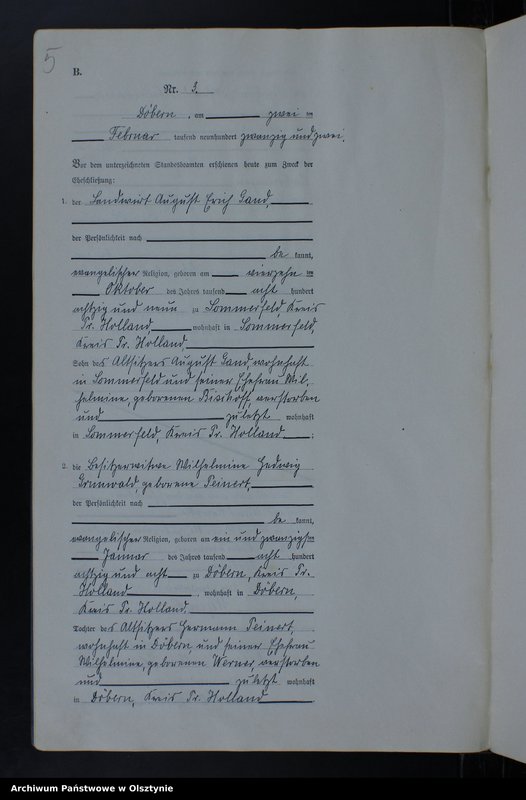 5
B.
Nr. 3.
Döbern, am zwei ten
Februar tausend neunhundert zwanzig und zwei.
Vor dem unterzeichneten Standesbeamten erschienen heute zum Zweck der
Eheschließung:
1. der Landwirt August Erich Land,
der Persönlichkeit nach
be kannt,
evangelischer Religion, geboren am vierzehn ten
Oktober des Jahres tausend acht hundert
achtzig und neun zu Sommerfeld, Kreis
Pr. Holland, wohnhaft in Sommerfeld,
Kreis Pr. Holland,
Sohn des Altsitzers August Land, wohnhaft
in Sommerfeld und seiner Ehefrau Wil-
helmine, geborenen verstorben
und zuletzt wohnhaft
in Sommerfeld, Kreis Pr. Holland;
2. die Besitzerwitwe Wilhelmine Hedwig
Grunwald, geborene Peinert,
der Persönlichkeit nach
be kannt,
evangelischer Religion, geboren am ein und zwanzigsten
Januar des Jahres tausend acht hundert
achtzig und acht zu Döbern, Kreis Pr.
Holland, wohnhaft in Döbern,
Kreis Pr. Holland,
Tochter des Altsitzers Hermann Peinert,
wohnhaft in Döbern, und seiner Ehefrau
Wilhelmine, geborenen Werner, verstorben
und zuletzt wohnhaft
in Döbern, Kreis Pr. Holland
Archiwum Państwowe w Olsztynie